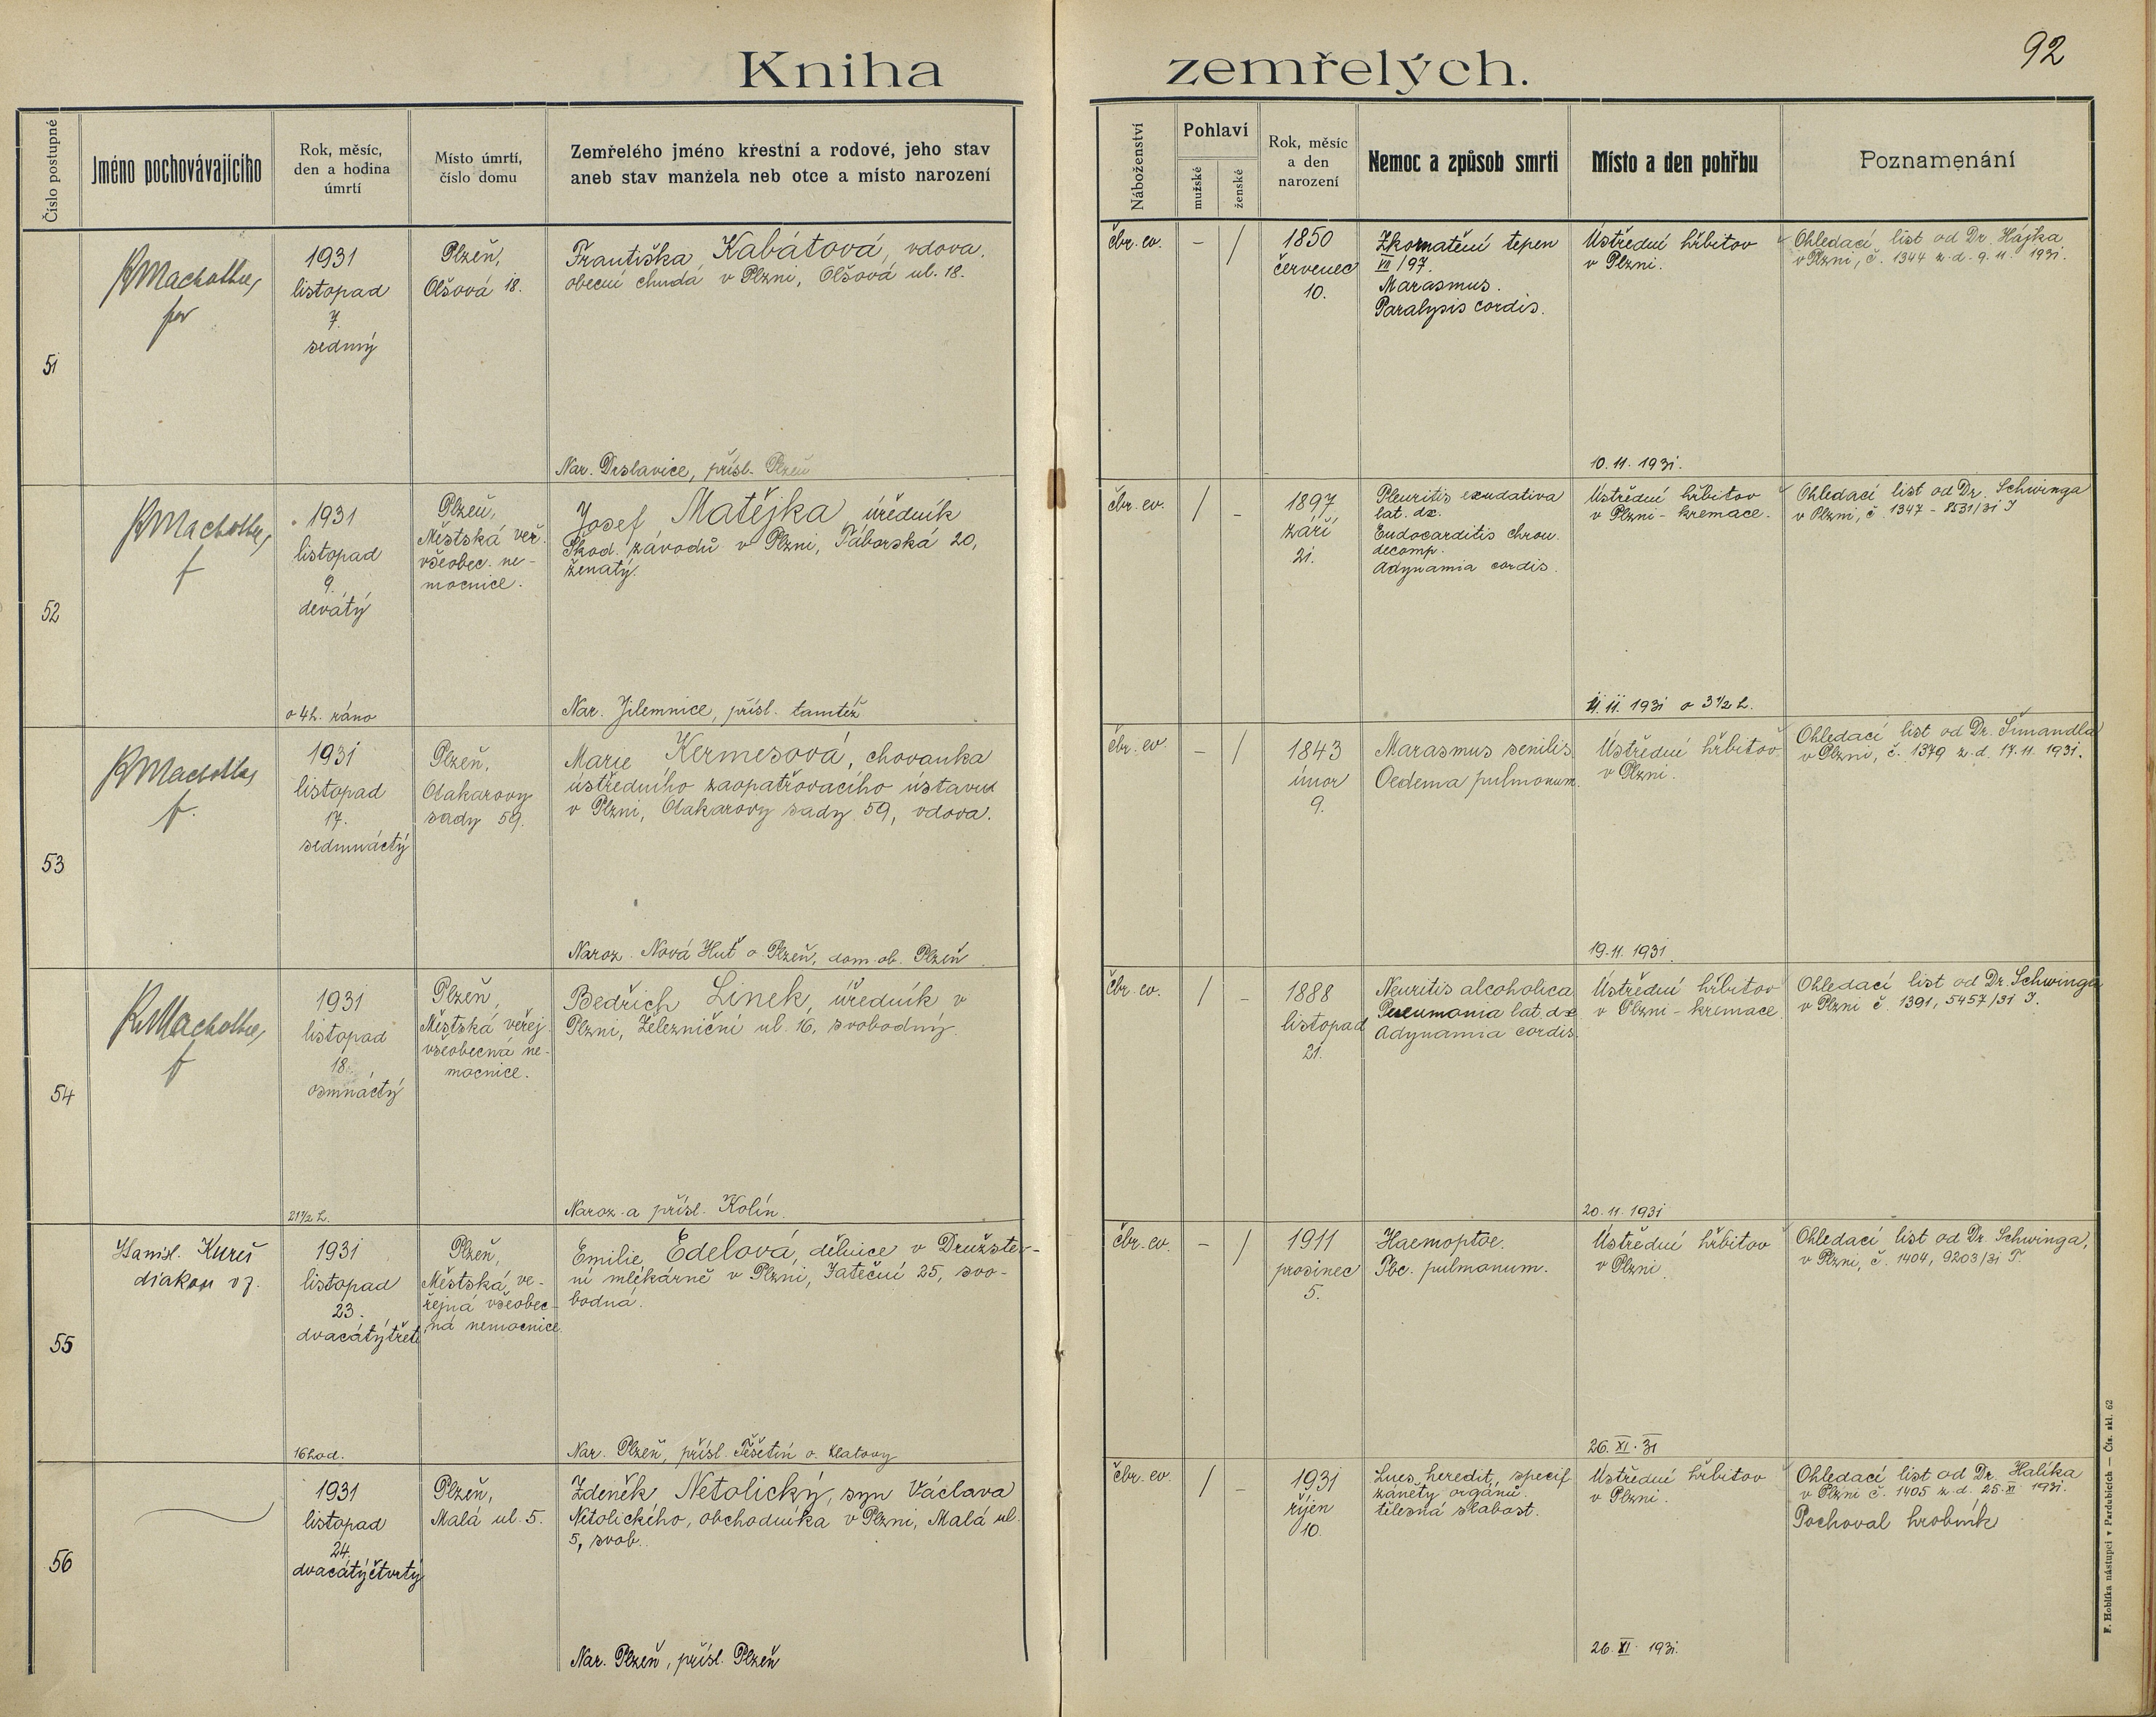 Kniha zemřelých.
92
Číslo postupné
Jméno pochovávajícího
Rok, měsíc,
den a hodina
úmrtí
Místo úmrtí,
číslo domu
Zemřelého jméno křestní a rodové, jeho stav
aneb stav manžela neb otce a místo narození
Náboženství
Pohlaví
mužské
ženské
Rok, měsíc
a den
narození
Nemoc a způsob smrti
Místo a den pohřbu
Poznamenání
51
1931
listopad
7.
sedmý
Plzeň,
Olšová 18.
Františka Kabátová, vdova,
obecní chudá v Plzni, Olšová ul. 18.
Nar. Drslavice, přísl. Plzeň
čbr. ev.
–
/
1850
červenec
10.
Zkornatění tepen
VII/97.
Marasmus.
Paralysis cordis.
Ústřední hřbitov
v Plzni.
10. 11. 1931.
Ohledací list od Dr. Hájka
v Plzni, č. 1344 z. d. 9. 11. 1931.
52
1931
listopad
9.
devátý
o 4h. ráno
Plzeň,
Městská veř.
všeobec. ne-
mocnice.
Josef Matějka úředník
Škod. závodů v Plzni, Táborská 20,
ženatý.
Nar. Jilemnice, přísl. tamtéž
čbr. ev.
/
–
1897
září
21.
Pleuritis exudativa
lat. dx.
Endocarditis chron.
decomp.
Adynamia cordis.
Ústřední hřbitov
v Plzni - kremace.
11. 11. 1931 o 3 1/2 h.
Ohledací list od Dr. Schwinga
v Plzni, č. 1347 - 8531/31 I
53
1931
listopad
17.
sedmnáctý
Plzeň,
Otakarovy
sady 59.
Marie Kermesová, chovanka
ústředního zaopatřovacího ústavu
v Plzni, Otakarovy sady 59, vdova.
Naroz. Nová Huť o. Plzeň, dom. ob. Plzeň
čbr. ev.
–
/
1843
únor
9.
Marasmus senilis.
Oedema pulmonum.
Ústřední hřbitov
v Plzni.
19. 11. 1931.
Ohledací list od Dr. Šimandla
v Plzni, č. 1379 z. d. 17. 11. 1931.
54
1931
listopad
18.
osmnáctý
21 1/2 h.
Plzeň,
Městská veřej.
všeobecná ne-
mocnice.
Bedřich Linek, úředník v
Plzni, Železniční ul. 16, svobodný.
Naroz. a přísl. Kolín.
čbr. ev.
/
–
1888
listopad
21.
Neuritis alcoholica
Pneumonia lat. dx
Adynamia cordis.
Ústřední hřbitov
v Plzni - kremace.
20. 11. 1931
Ohledací list od Dr. Schwinga
v Plzni č. 1391, 5457/31 I.
55
diakon vz.
1931
listopad
23.
dvacátýtřetí
16 hod.
Plzeň,
Městská ve-
řejná všeobec-
ná nemocnice.
Emilie Edelová, dělnice v Družste-
ní mlékárně v Plzni, Jateční 25, svo-
bodná.
Nar. Plzeň, přísl. Těšetín o. Klatovy
čbr. ev.
–
/
1911
prosinec
5.
Haemoptoe.
Tbc. pulmonum.
Ústřední hřbitov
v Plzni.
26. XI. 31
Ohledací list od Dr. Schwinga,
v Plzni, č. 1404, 9203/31 T.
56
1931
listopad
24.
dvacátýčtvrtý
Plzeň,
Malá ul. 5.
Zdeněk Netolický, syn Václava
Netolického, obchodníka v Plzni, Malá ul.
5, svob.
Nar. Plzeň, přísl. Plzeň
čbr. ev.
/
–
1931
říjen
10.
Lues heredit, specif
záněty orgánů.
tělesná slabost.
Ústřední hřbitov
v Plzni.
26. XI. 1931.
Ohledací list od Dr. Halíka
v Plzni č. 1405 z. d. 25. XI 1931.
Pochoval hrobník
F. Hoblíka nástupci v Pardubicích — Čís. skl. 62